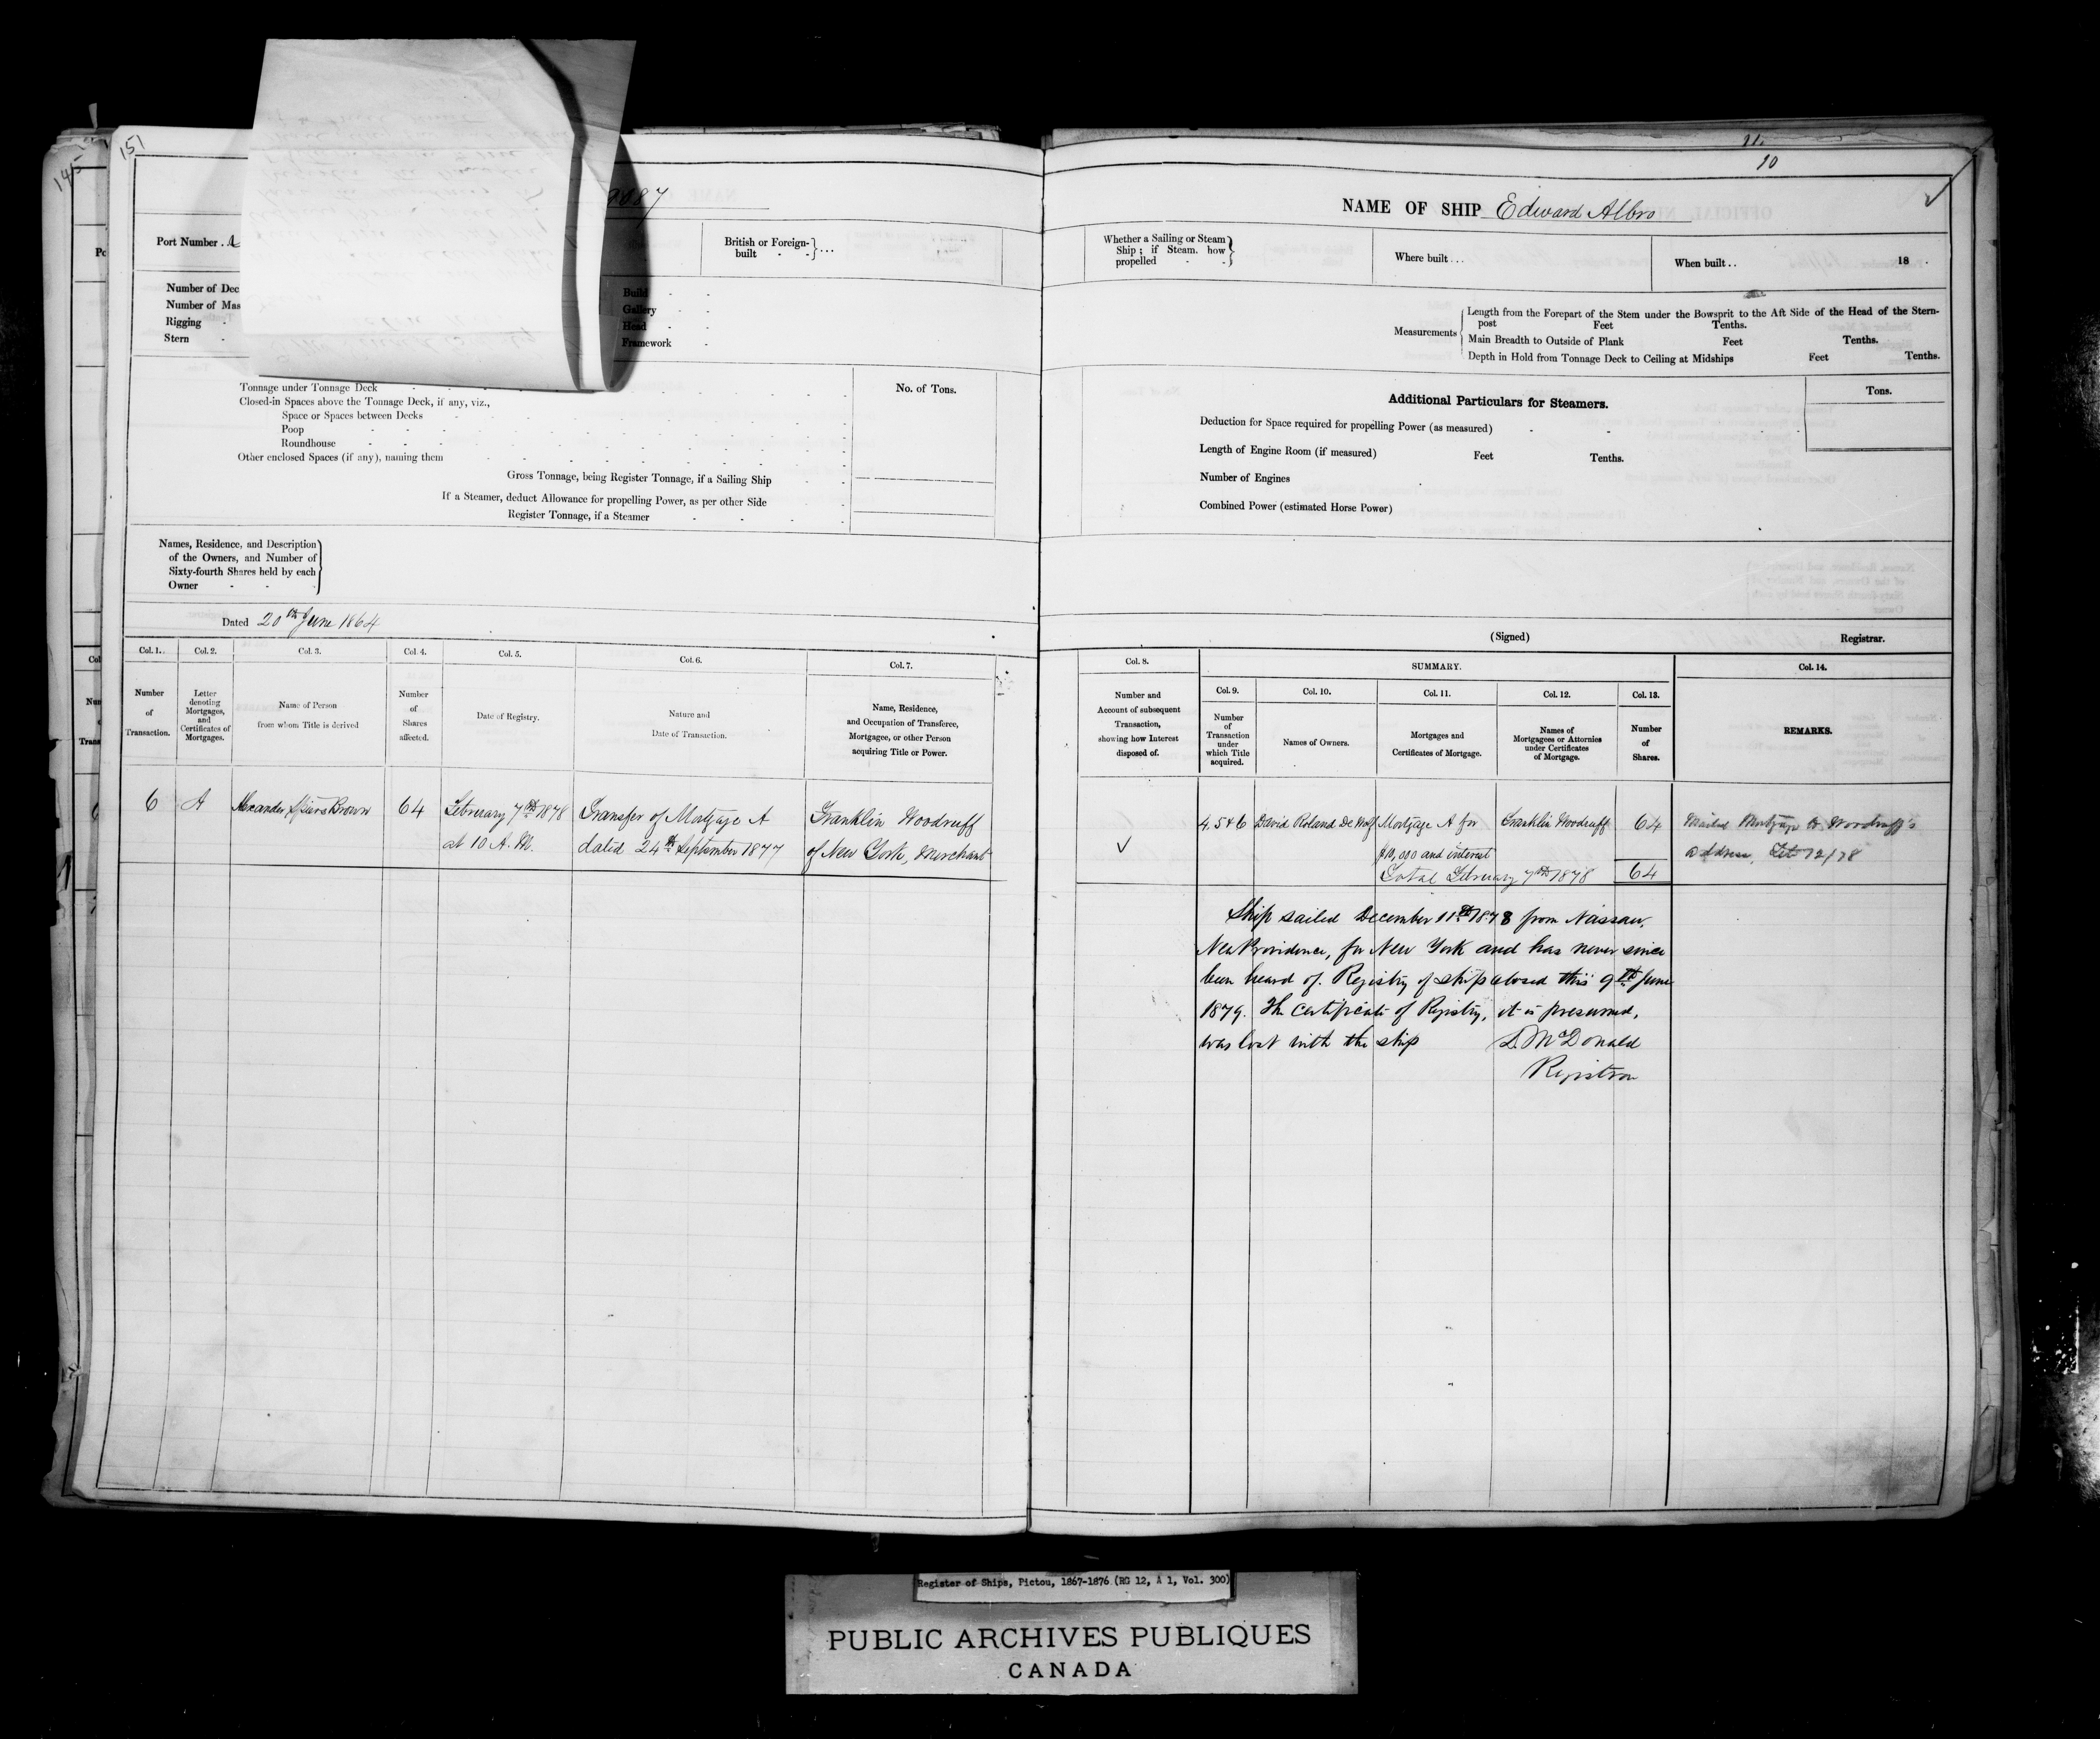 151
145
11.
10
2087
NAME OF SHIP Edward Albro
Port Number
British or Foreign-built
Whether a Sailing or Steam Ship; if Steam. how propelled
Where built...
When built..
18
Number of Dec
Number of Mas
Rigging
Stern
Build
Gallery
Head
Framework
Measurements
Length from the Forepart of the Stem under the Bowsprit to the Aft Side of the Head of the Stern-
post Feet Tenths.
Main Breadth to Outside of Plank Feet Tenths.
Depth in Hold from Tonnage Deck to Ceiling at Midships Feet Tenths.
No. of Tons.
Tonnage under Tonnage Deck
Closed-in Spaces above the Tonnage Deck, if any, viz.,
Space or Spaces between Decks
Poop
Roundhouse
Other enclosed Spaces (if any), naming them
Gross Tonnage, being Register Tonnage, if a Sailing Ship
If a Steamer, deduct Allowance for propelling Power, as per other Side
Register Tonnage, if a Steamer
Additional Particulars for Steamers.
Tons.
Deduction for Space required for propelling Power (as measured)
Length of Engine Room (if measured) Feet Tenths.
Number of Engines
Combined Power (estimated Horse Power)
Names, Residence, and Description
of the Owners, and Number of
Sixty-fourth Shares held by each
Owner
Dated 20th June 1864
(Signed) Registrar.
Col. 1. Col. 2. Col. 3. Col. 4. Col. 5. Col. 6. Col. 7.
Number of Transaction.
Letter denoting Mortgages, and Certificates of Mortgages.
Name of Person from whom Title is derived
Number of Shares affected.
Date of Registry.
Nature and Date of Transaction.
Name, Residence, and Occupation of Transferee, Mortgagee, or other Person acquiring Title or Power.
6 A Alexander Spiers Brown 64 February 7th 1878 Transfer of Mortgage A Franklin Woodruff
at 10 A.M. dated 24th September 1877 of New York, Merchant
Col. 8.
SUMMARY.
Col. 14.
Col. 9. Col. 10. Col. 11. Col. 12. Col. 13.
Number and Account of subsequent Transaction, showing how Interest disposed of.
Number of Transaction under which Title acquired.
Names of Owners.
Mortgages and Certificates of Mortgage.
Names of Mortgagees or Attornies under Certificates of Mortgage.
Number of Shares.
REMARKS.
4. 5 & 6 David Roland De Wolf Mortgage A for Franklin Woodruff 64 Mailed Mortgage to Woodruff's
$10,000 and interest address, Feb 12/78
Total February 7th 1878 64
Ship sailed December 11th 1878 from Nassau,
New Providence, for New York and has never since
been heard of. Registry of ship closed this 9th June
1879. The Certificate of Registry, it is presumed,
was lost with the ship D. McDonald
Registrar
Register of Ships, Pictou, 1867-1876 (RG 12, A 1, Vol. 300)
PUBLIC ARCHIVES PUBLIQUES
CANADA